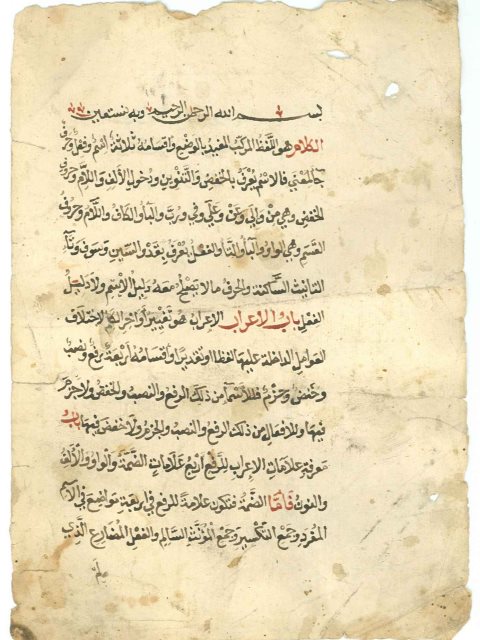 بسم الله الرحمن الرحيم وبه نستعين
الكلام هو اللفظ المركب المفيد بالوضع واقسامه ثلاثة اسم وفعل وحرف
جا لمعني فالاسم يعرف بالخفض والتنوين ودخول الألف واللام وحروف
الخفض وهي من والى وعن وعلى وفي ورب والبا والكاف واللام وحروف
القسم وهي الواو والبا والتا والفعل يعرف بقد والسين وسوف وتا
التانيث الساكنة والحرف ما لا يصلح معه دليل الاسم ولا دليل
الفعل باب الاعراب الاعراب هو تغيير اواخر الكلم لاختلاف
العوامل الداخلة عليها لفظا او تقديرا واقسامه أربعة رفع ونصب
وخفض وجزم فللاسما من ذلك الرفع والنصب والخفض ولا جزم
فيها وللافعال من ذلك الرفع والنصب والجزم ولا خفض فيها باب
معرفة علامات الاعراب للرفع أربع علامات الضمة والواو والألف
والنون فاما الضمة فتكون علامة للرفع في اربعة مواضع في الاسم
المفرد وجمع التكسير وجمع المؤنث السالم والفعل المضارع الذي
لم